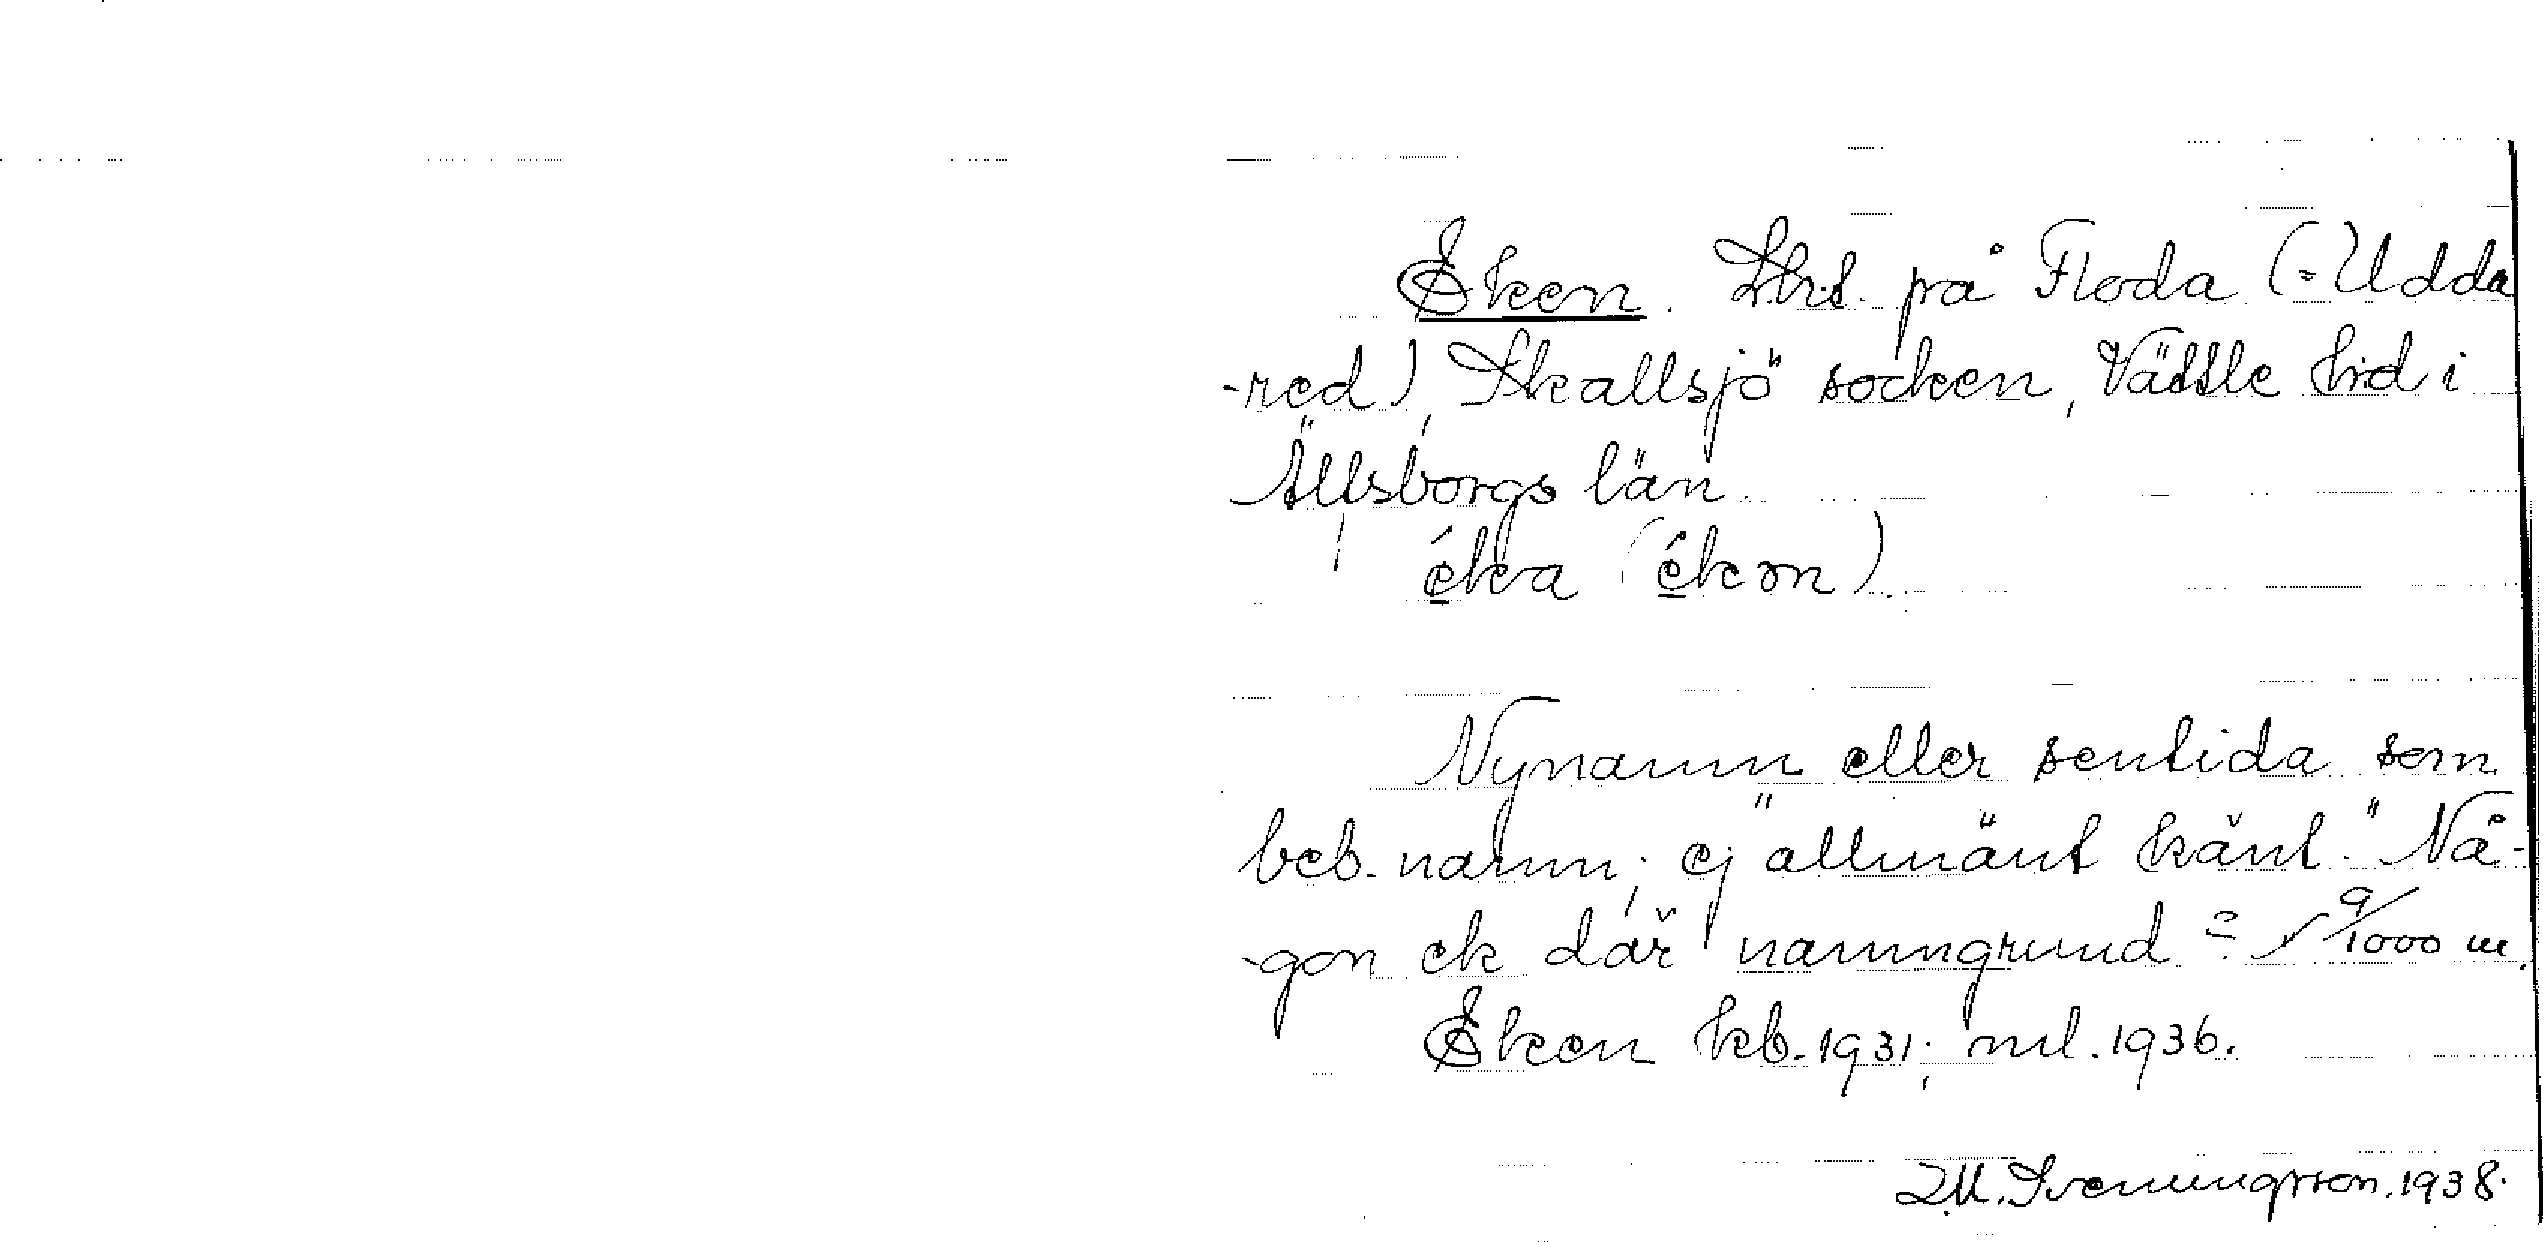 Eken. Lht. på Floda (= Udda
-red), Skallsjö socken, Vättle hd i
Älfsborgs län
éka (ékən)
Nynamn eller sentida som
beb. namn; ej "allmänt känt." Nå-
-gon ek där namngrund = 9/1000 m.
Eken kb. 1931; ml. 1936.
I.M. Svenungsson. 1938.